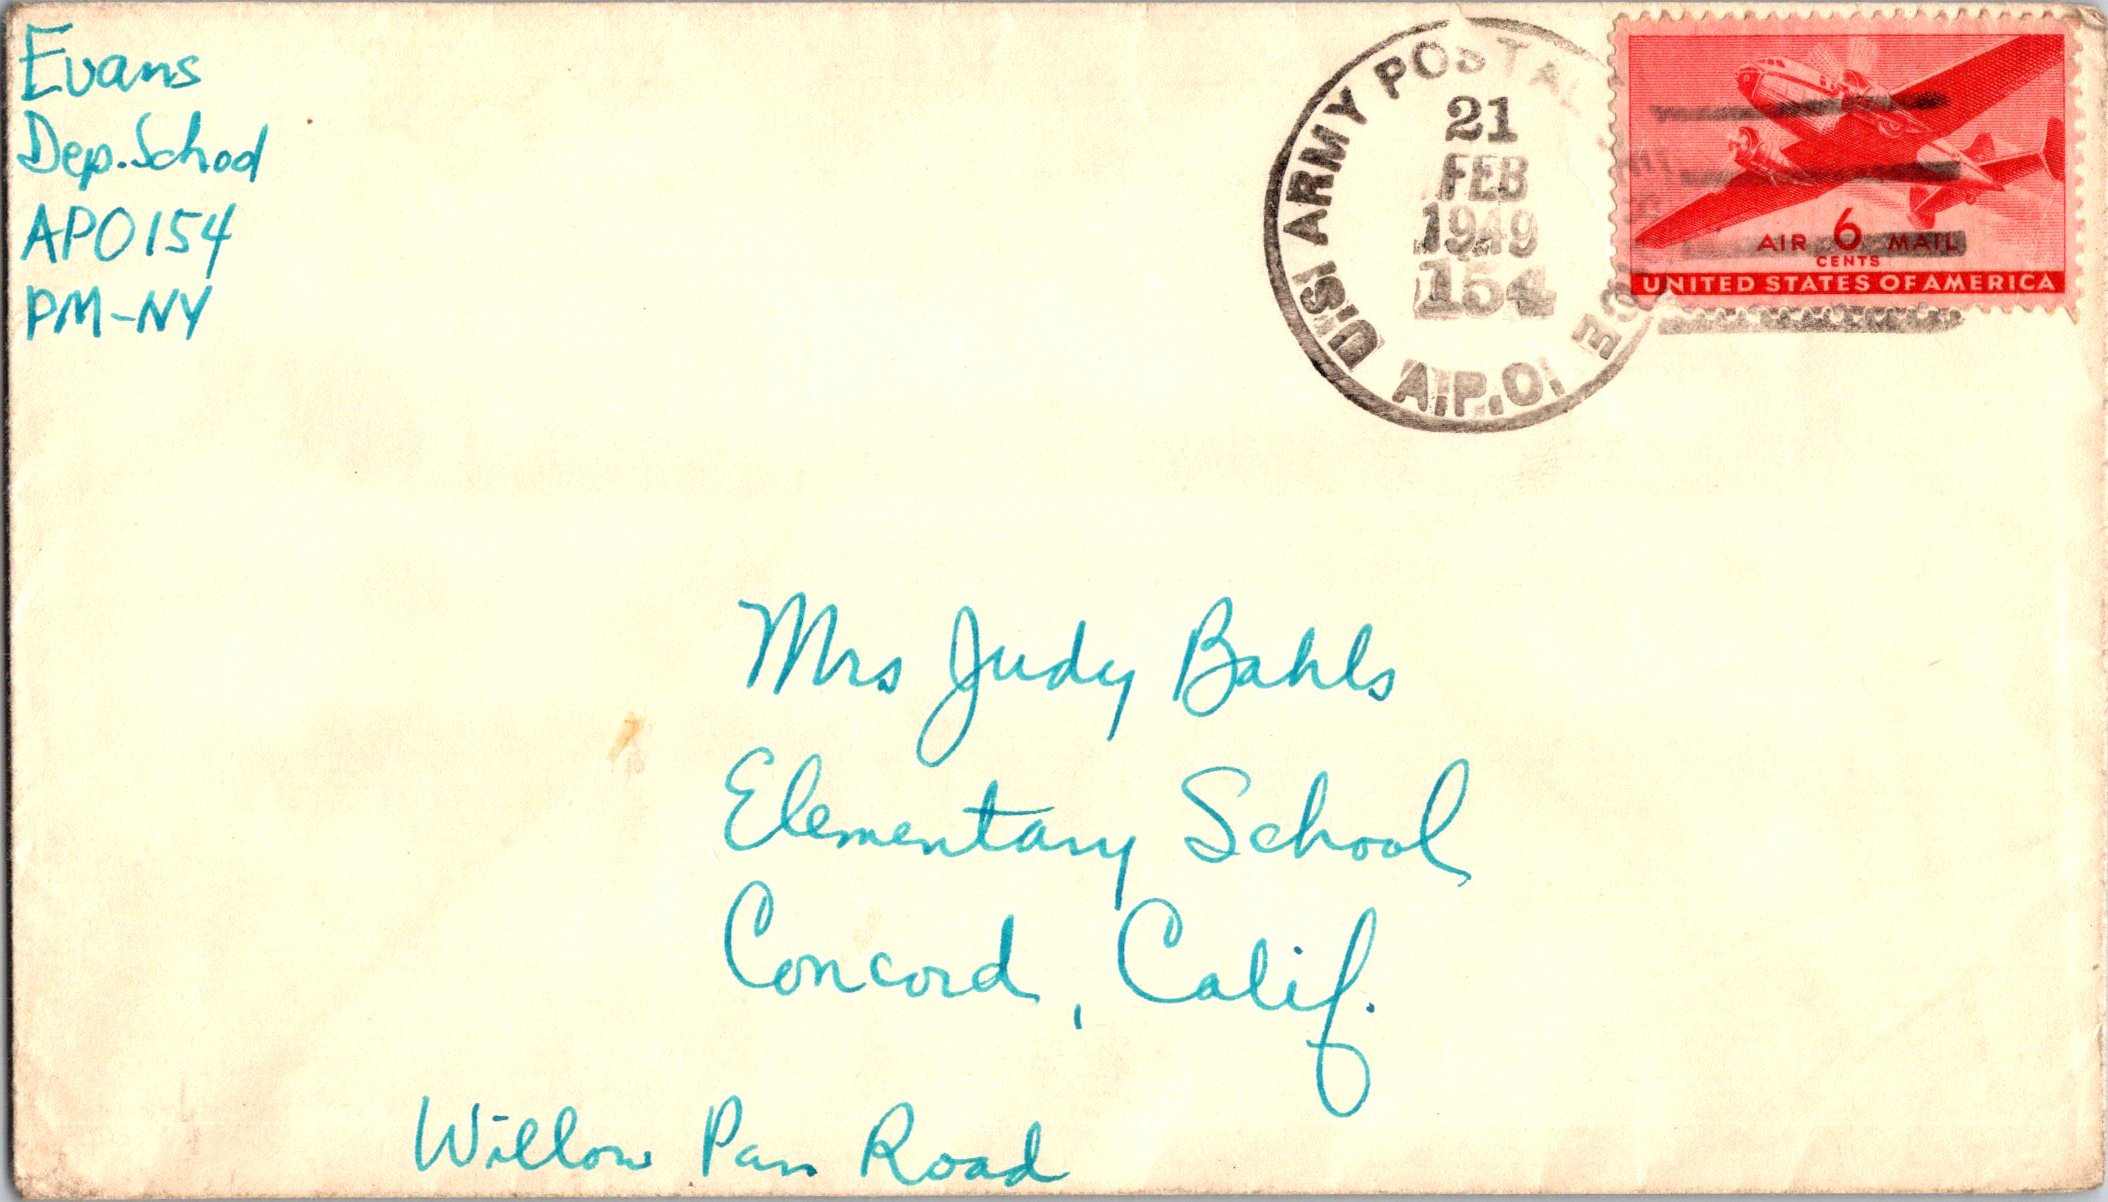 Evans
Dep. School
APO 154
PM-NY
U.S. ARMY POSTAL SERVICE
21
FEB
1949
154
A.P.O.
AIR 6 MAIL
CENTS
UNITED STATES OF AMERICA
Mrs Judy Bahls
Elementary School
Concord, Calif.
Willow Pan Road